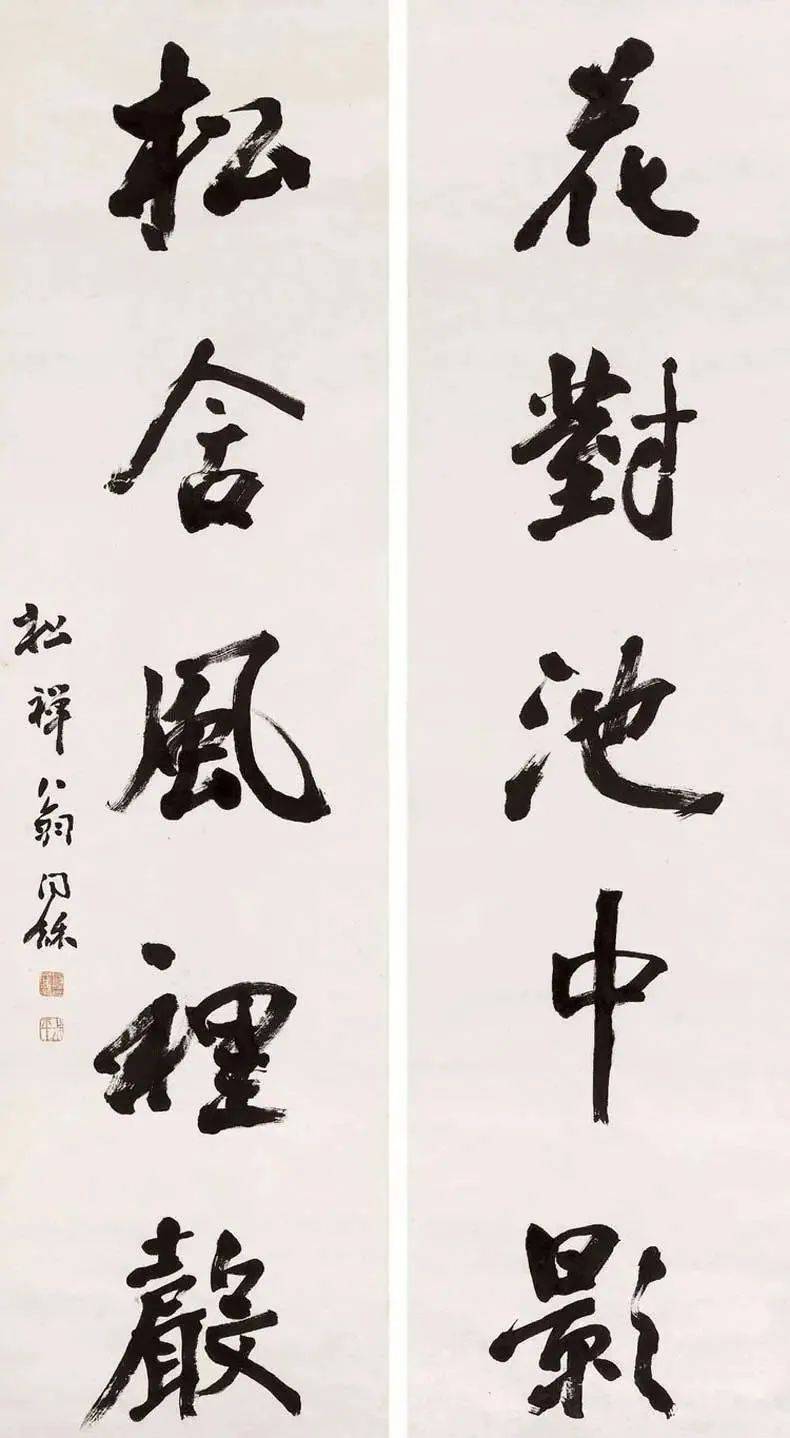 花對池中影
松含風裡聲
松禪翁同龢